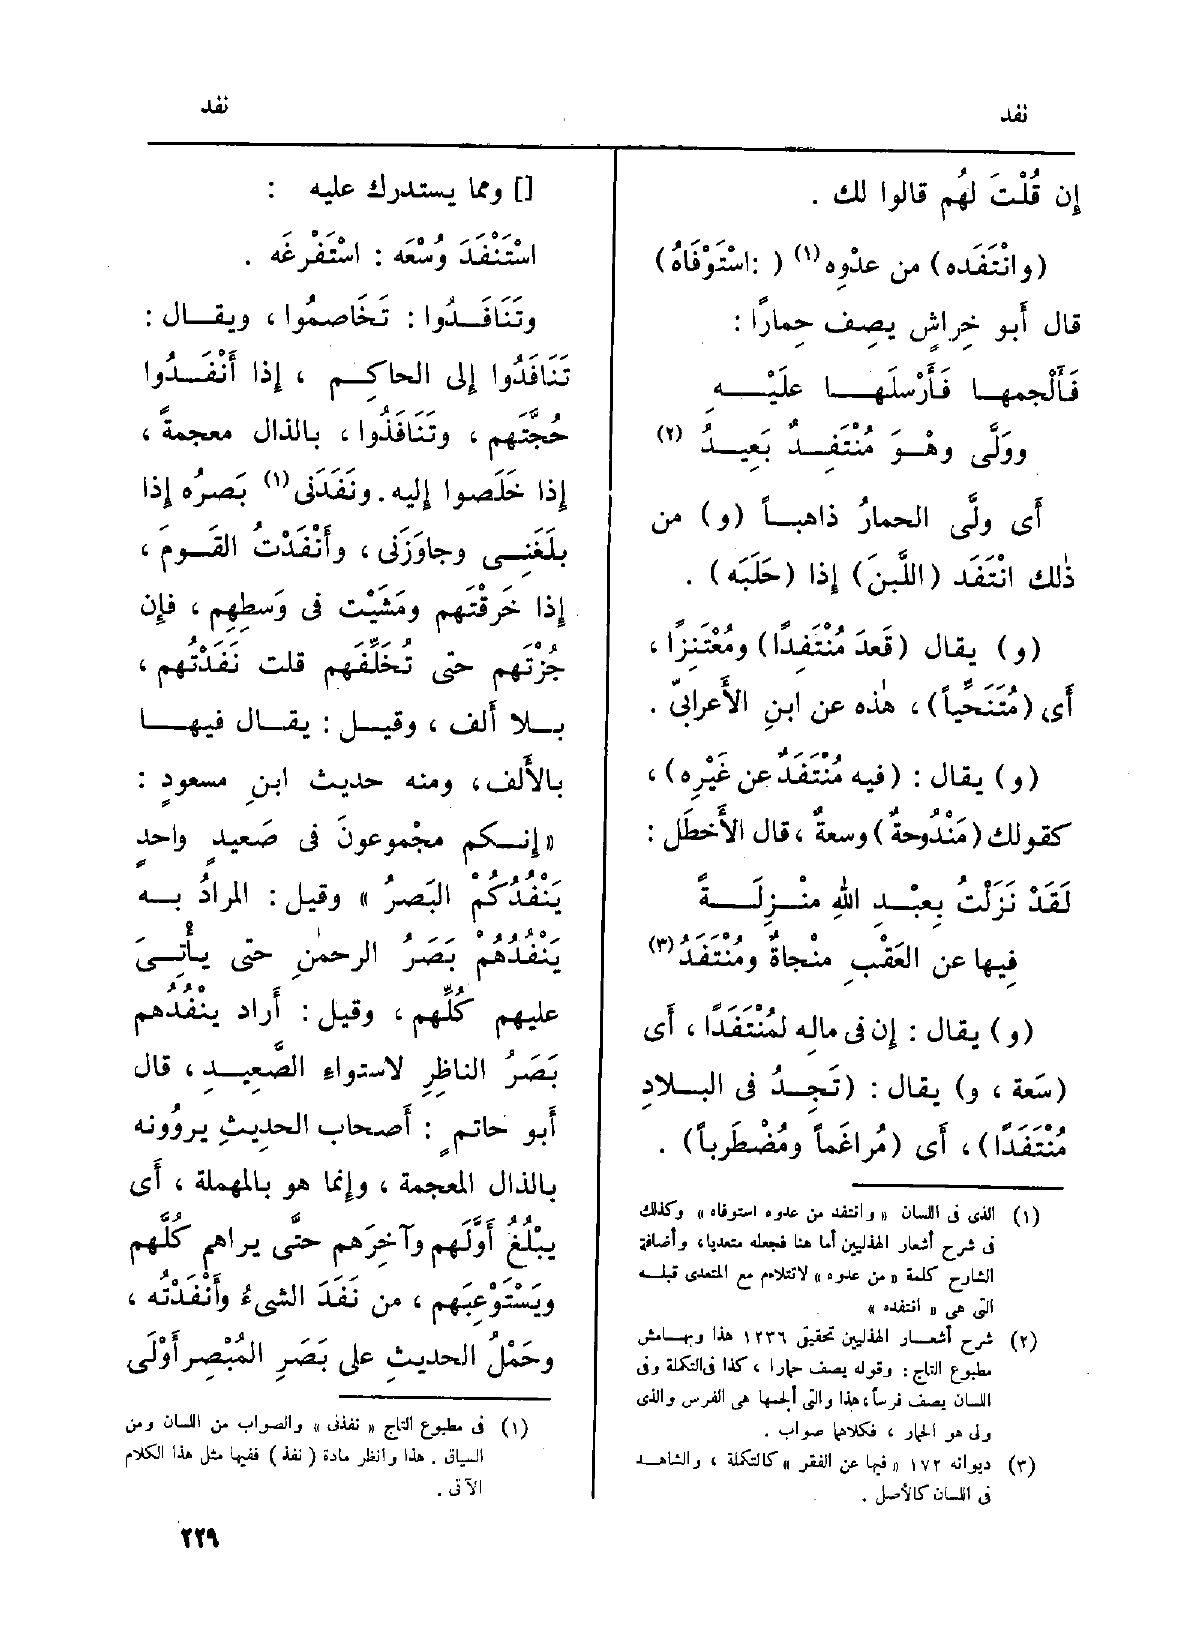 نفد
إن قُلْتَ لهُم قالوا لك .
(وانْتَفَده) من عدْوِه(١) ( :اسْتَوْفَاهُ)
قال أَبو خِراشٍ يصِف حِمارًا :
فَأَلْجمها فَأَرْسلَها علَيْهِ
وولَّى وهْوَ مُنْتَفِدٌ بَعِيدُ (٢)
أَى ولَّى الحمارُ ذاهباً (و) من
ذٰلك انْتَفَد (اللَّبنَ) إذا (حَلَبَه) .
(و) يقال (قَعدَ مُنْتَفِدًا) ومُعْتَنِزًا ،
أَى (مُتَنَحِّياً) ، هٰذه عن ابنِ الأَعرابىّ .
(و) يقال : (فيه مُنْتَفَدٌ عن غَيْرِه) ،
كقولك (مَنْدُوحةٌ) وسعةٌ ، قال الأَخطَل :
لَقَدْ نَزَلْتُ بِعبْدِ اللهِ منْزِلَةً
فِيها عن العَقْبِ منْجاةٌ ومُنْتَفَدُ(٣)
(و) يقال : إن فى مالِه لمُنْتَفَدًا ، أَى
(سَعة ، و) يقال : (تَجِدُ فى البلادِ
مُنْتَفَدًا) ، أَى (مُراغَماً ومُضْطَرباً) .
(١) الذى فى اللسان « وانتفد من عدوه استوفاه » وكذلك
فى شرح أشعار الهذليين أما هنا فجعله متعديا، وأضافة
الشارح كلمة « من عدوه » لاتتلاءم مع المتعدى قبله
التى هى « انتفده »
(٢) شرح أشعار الهذليين تحقيق ١٢٣٦ هذا وبهامش
مطبوع التاج : وقوله يصف حمارا ، كذا فى التكملة وفى
اللسان يصف فرساً، هذا والتى ألجمها هى الفرس والذى
ولى هو الحمار ، فكلاهما صواب .
(٣) ديوانه ١٧٢ « فيها عن الفقر » كالتكملة ، والشاهد
فى اللسان كالأصل .
نفد
[] ومما يستدرك عليه :
اسْتَنْفَدَ وُسْعَه : اسْتَفْرغَه .
وتَنَافَدُوا : تَخَاصمُوا ، ويقال :
تَنَافَدُوا إلى الحاكِمِ ، إذا أَنْفَدُوا
حُجَّتَهم ، وتَنَافَذُوا ، بالذال معجمةً ،
إذا خَلَصوا إليه. ونَفَدَنى(١) بَصرُه إذا
بلَغَنِى وجاوَزَنى ، وأَنْفَدْتُ القَومَ ،
إذا خَرقْتَهم ومَشَيْت فى وَسطِهِم ، فإن
جُزْتَهم حتى تُخَلِّفَهم قلت نَفَدْتُهم ،
بلا أَلف ، وقيل : يقال فيها
بالأَلف ، ومنه حديث ابنِ مسعودٍ :
« إنكم مجْموعونَ فى صَعيدٍ واحدٍ
يَنْفُدُكُم البَصرُ » وقيل : المرادُ به
يَنْفُدُهُمْ بَصَرُ الرحمٰنِ حتى يأْتِىَ
عليهم كُلِّهم ، وقيل : أَراد ينْفُدُهم
بَصَرُ الناظِرِ لاستواءِ الصَّعِيدِ ، قال
أَبو حاتمٍ : أَصحاب الحديثِ يروُونه
بالذال المعجمة ، وإنما هو بالمهملة ، أَى
يبْلُغُ أَوَّلَهم وآخِرَهم حتَّى يراهم كُلَّهم
ويَسْتَوْعِبَهم ، من نَفَدَ الشىءُ وأَنْفَدْتُه ،
وحَمْلُ الحديثِ على بَصَرِ المُبْصِرِ أَوْلَى
(١) فى مطبوع التاج « نفذنى » والصواب من اللسان ومن
السياق . هذا وانظر مادة ( نفذ ) ففيها مثل هذا الكلام
الآتى .
٢٢٩